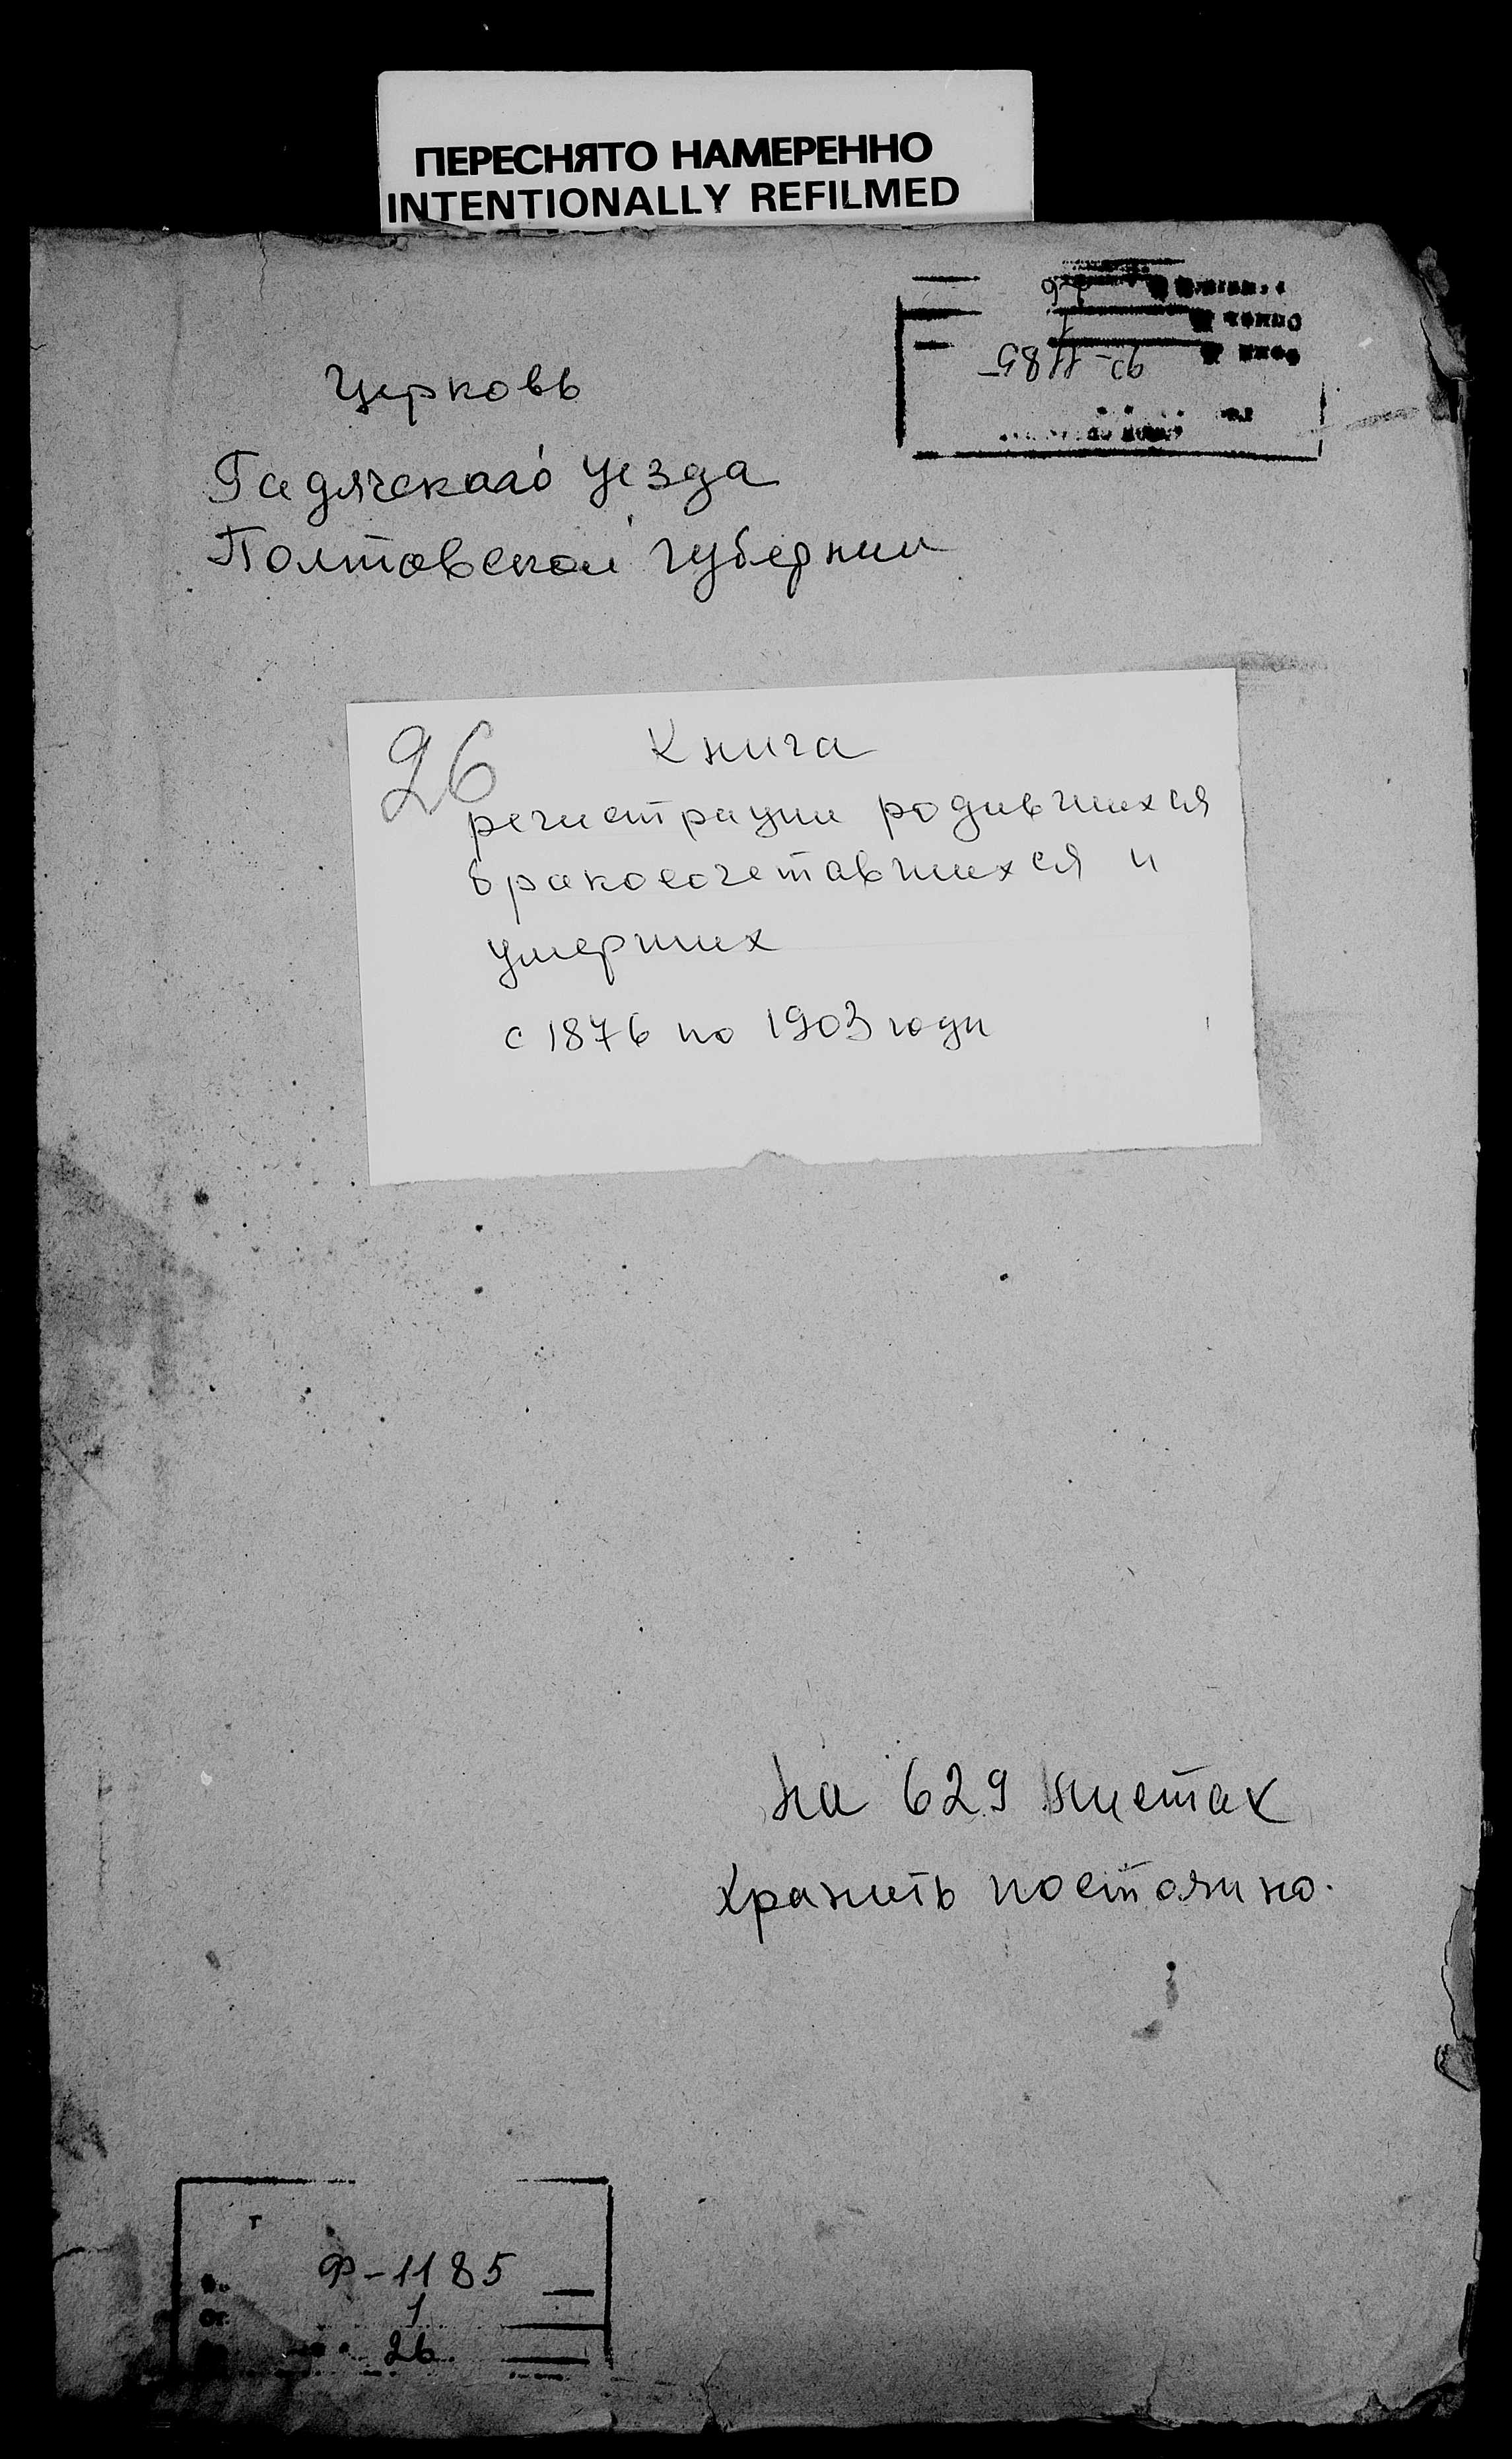 ПЕРЕСНЯТО НАМЕРЕННО
INTENTIONALLY REFILMED
Ф-1185
1
26
Церковь
Гадячского уезда
Полтавской губернии
26
Книга
регистрации родившихся
бракосочетавшихся и
умерших
с 1876 по 1903 годы
на 629 листах
Хранить постоянно.
Ф-1185
1
26